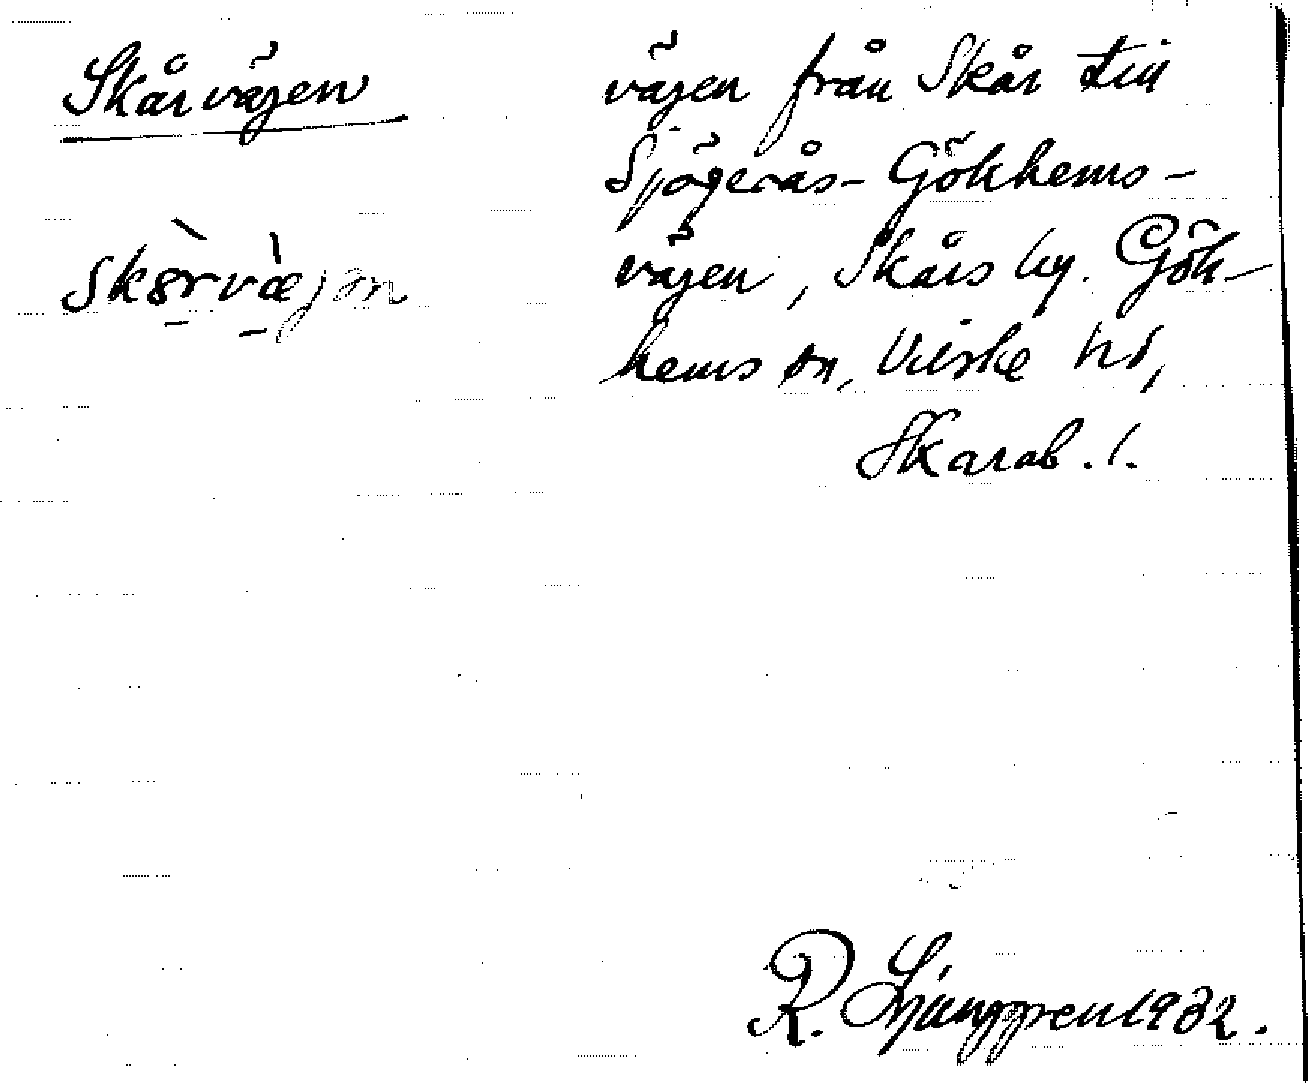 Skårvägen
skðrvæjən
vägen från Skår till
Sjögerås-Gökhems-
vägen, Skårs by. Gök-
hems sn, Vilske hd,
Skarab. l.
R. Ljunggren 1932.